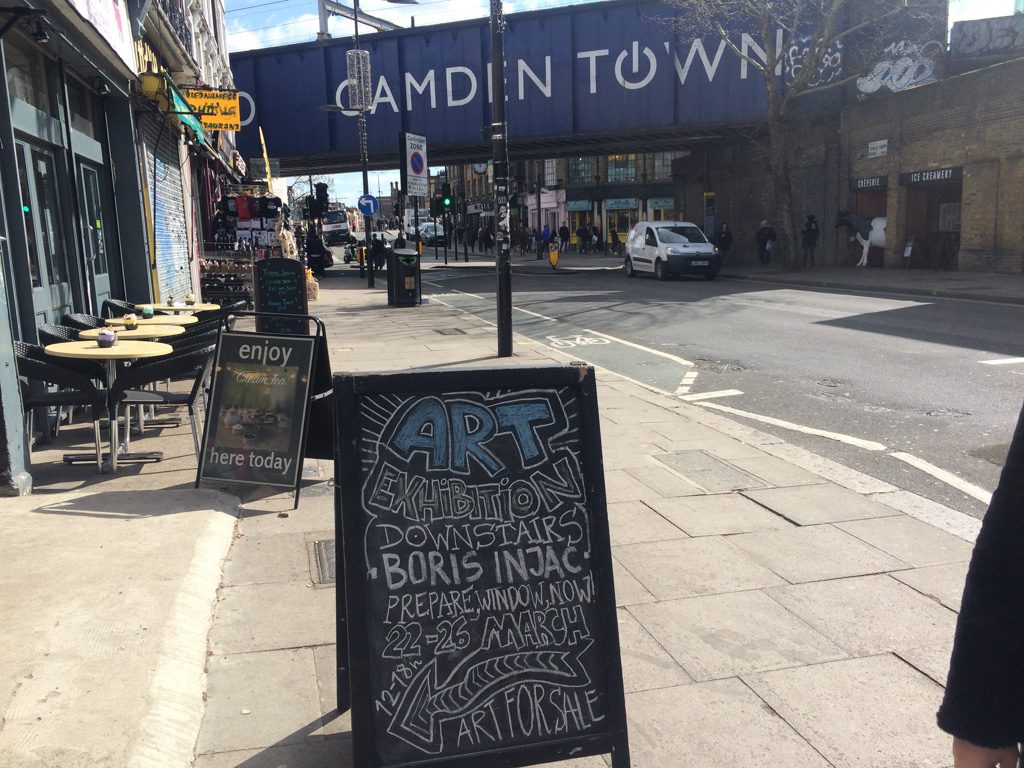 CAMDEN TOWN
VIETNAMESE
RESTAURANT
ZONE
CRÊPERIE
ICE CREAMERY
enjoy
Cream Tea
here today
ART
EXHIBITION
DOWNSTAIRS
BORIS INJAC
PREPARE, WINDOW, NOW!
22-26 MARCH
12-18h
ART FOR SALE